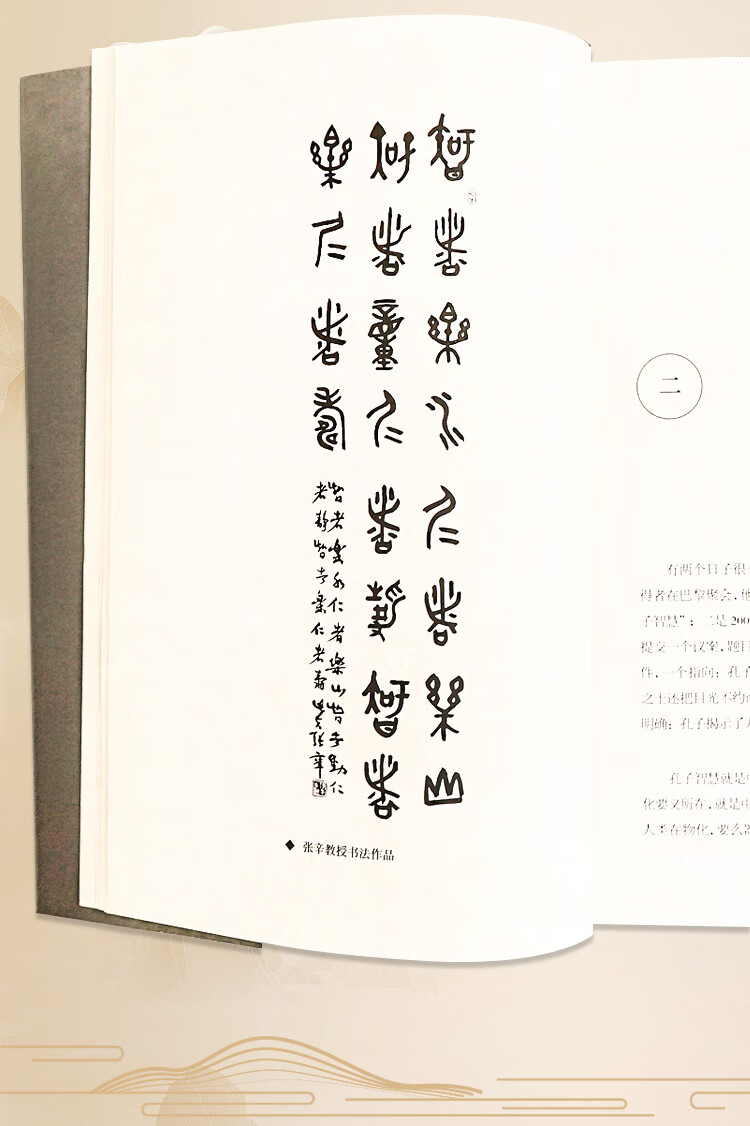 智者樂水仁者樂山
智者童仁者靜智者
樂仁者壽
智者樂水仁者樂山智者動仁
者靜智者樂仁者壽 張辛
◆ 张辛教授书法作品
二
有两个日子很
得者在巴黎聚会，他
子智慧”；二是 200
提交一个议案，题目
件，一个指向：孔子
之士还把目光不约而
明确：孔子揭示了人
孔子智慧就是中
化要义所在，就是中
人类在物化，要么器